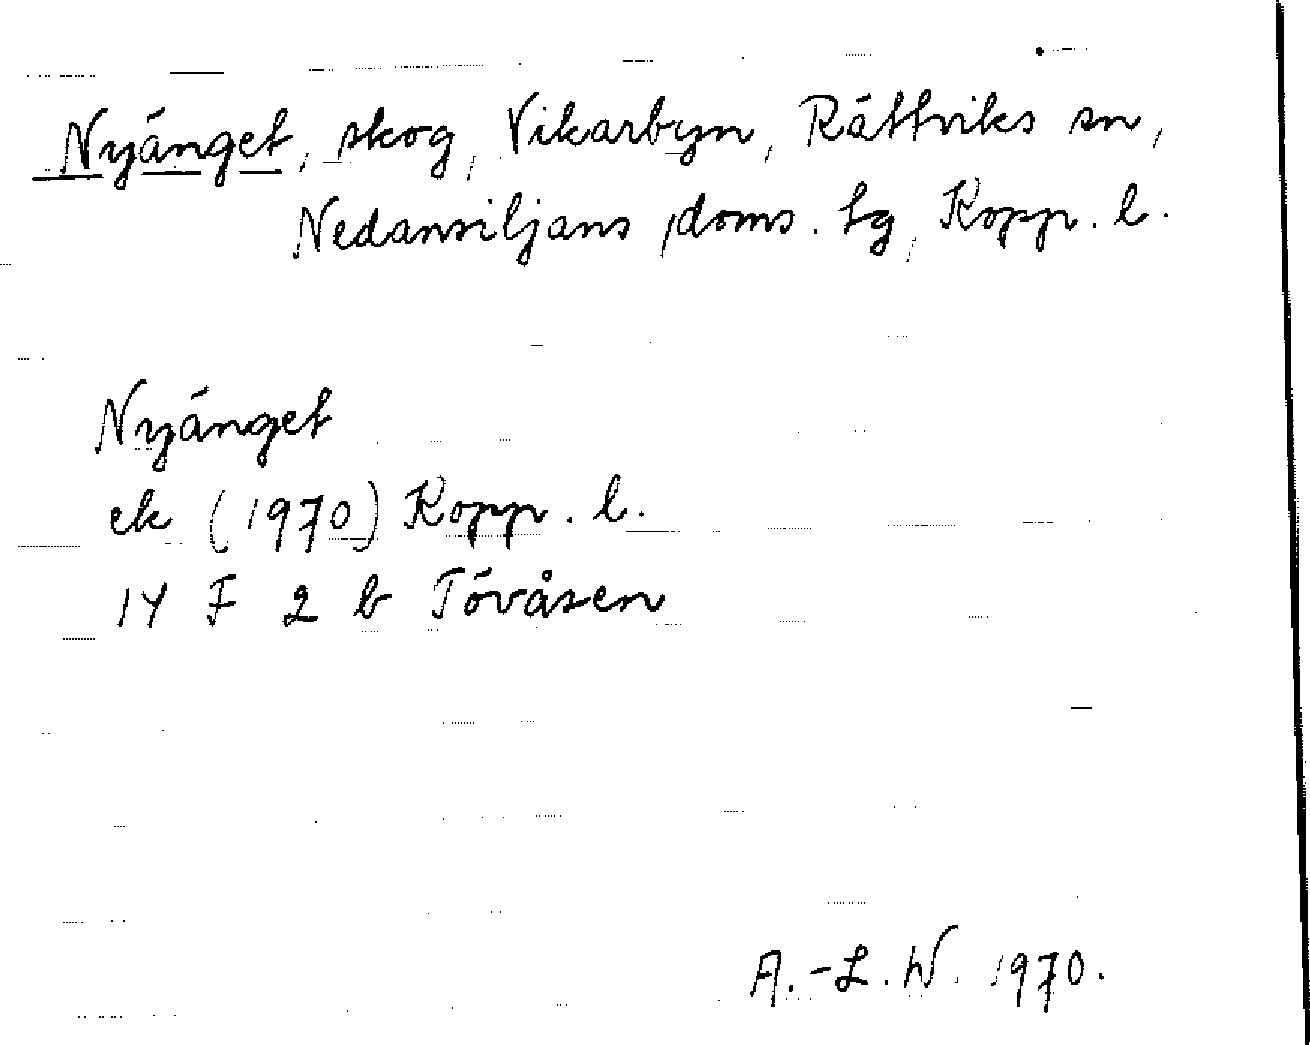 Nyänget, skog, Vikarbyn, Rättviks sn,
Nedansiljans doms. tg, Kopp. l.
Nyänget
ek (1970) Kopp. l.
14 F 2 b Tövåsen
A.-L. W. 1970.